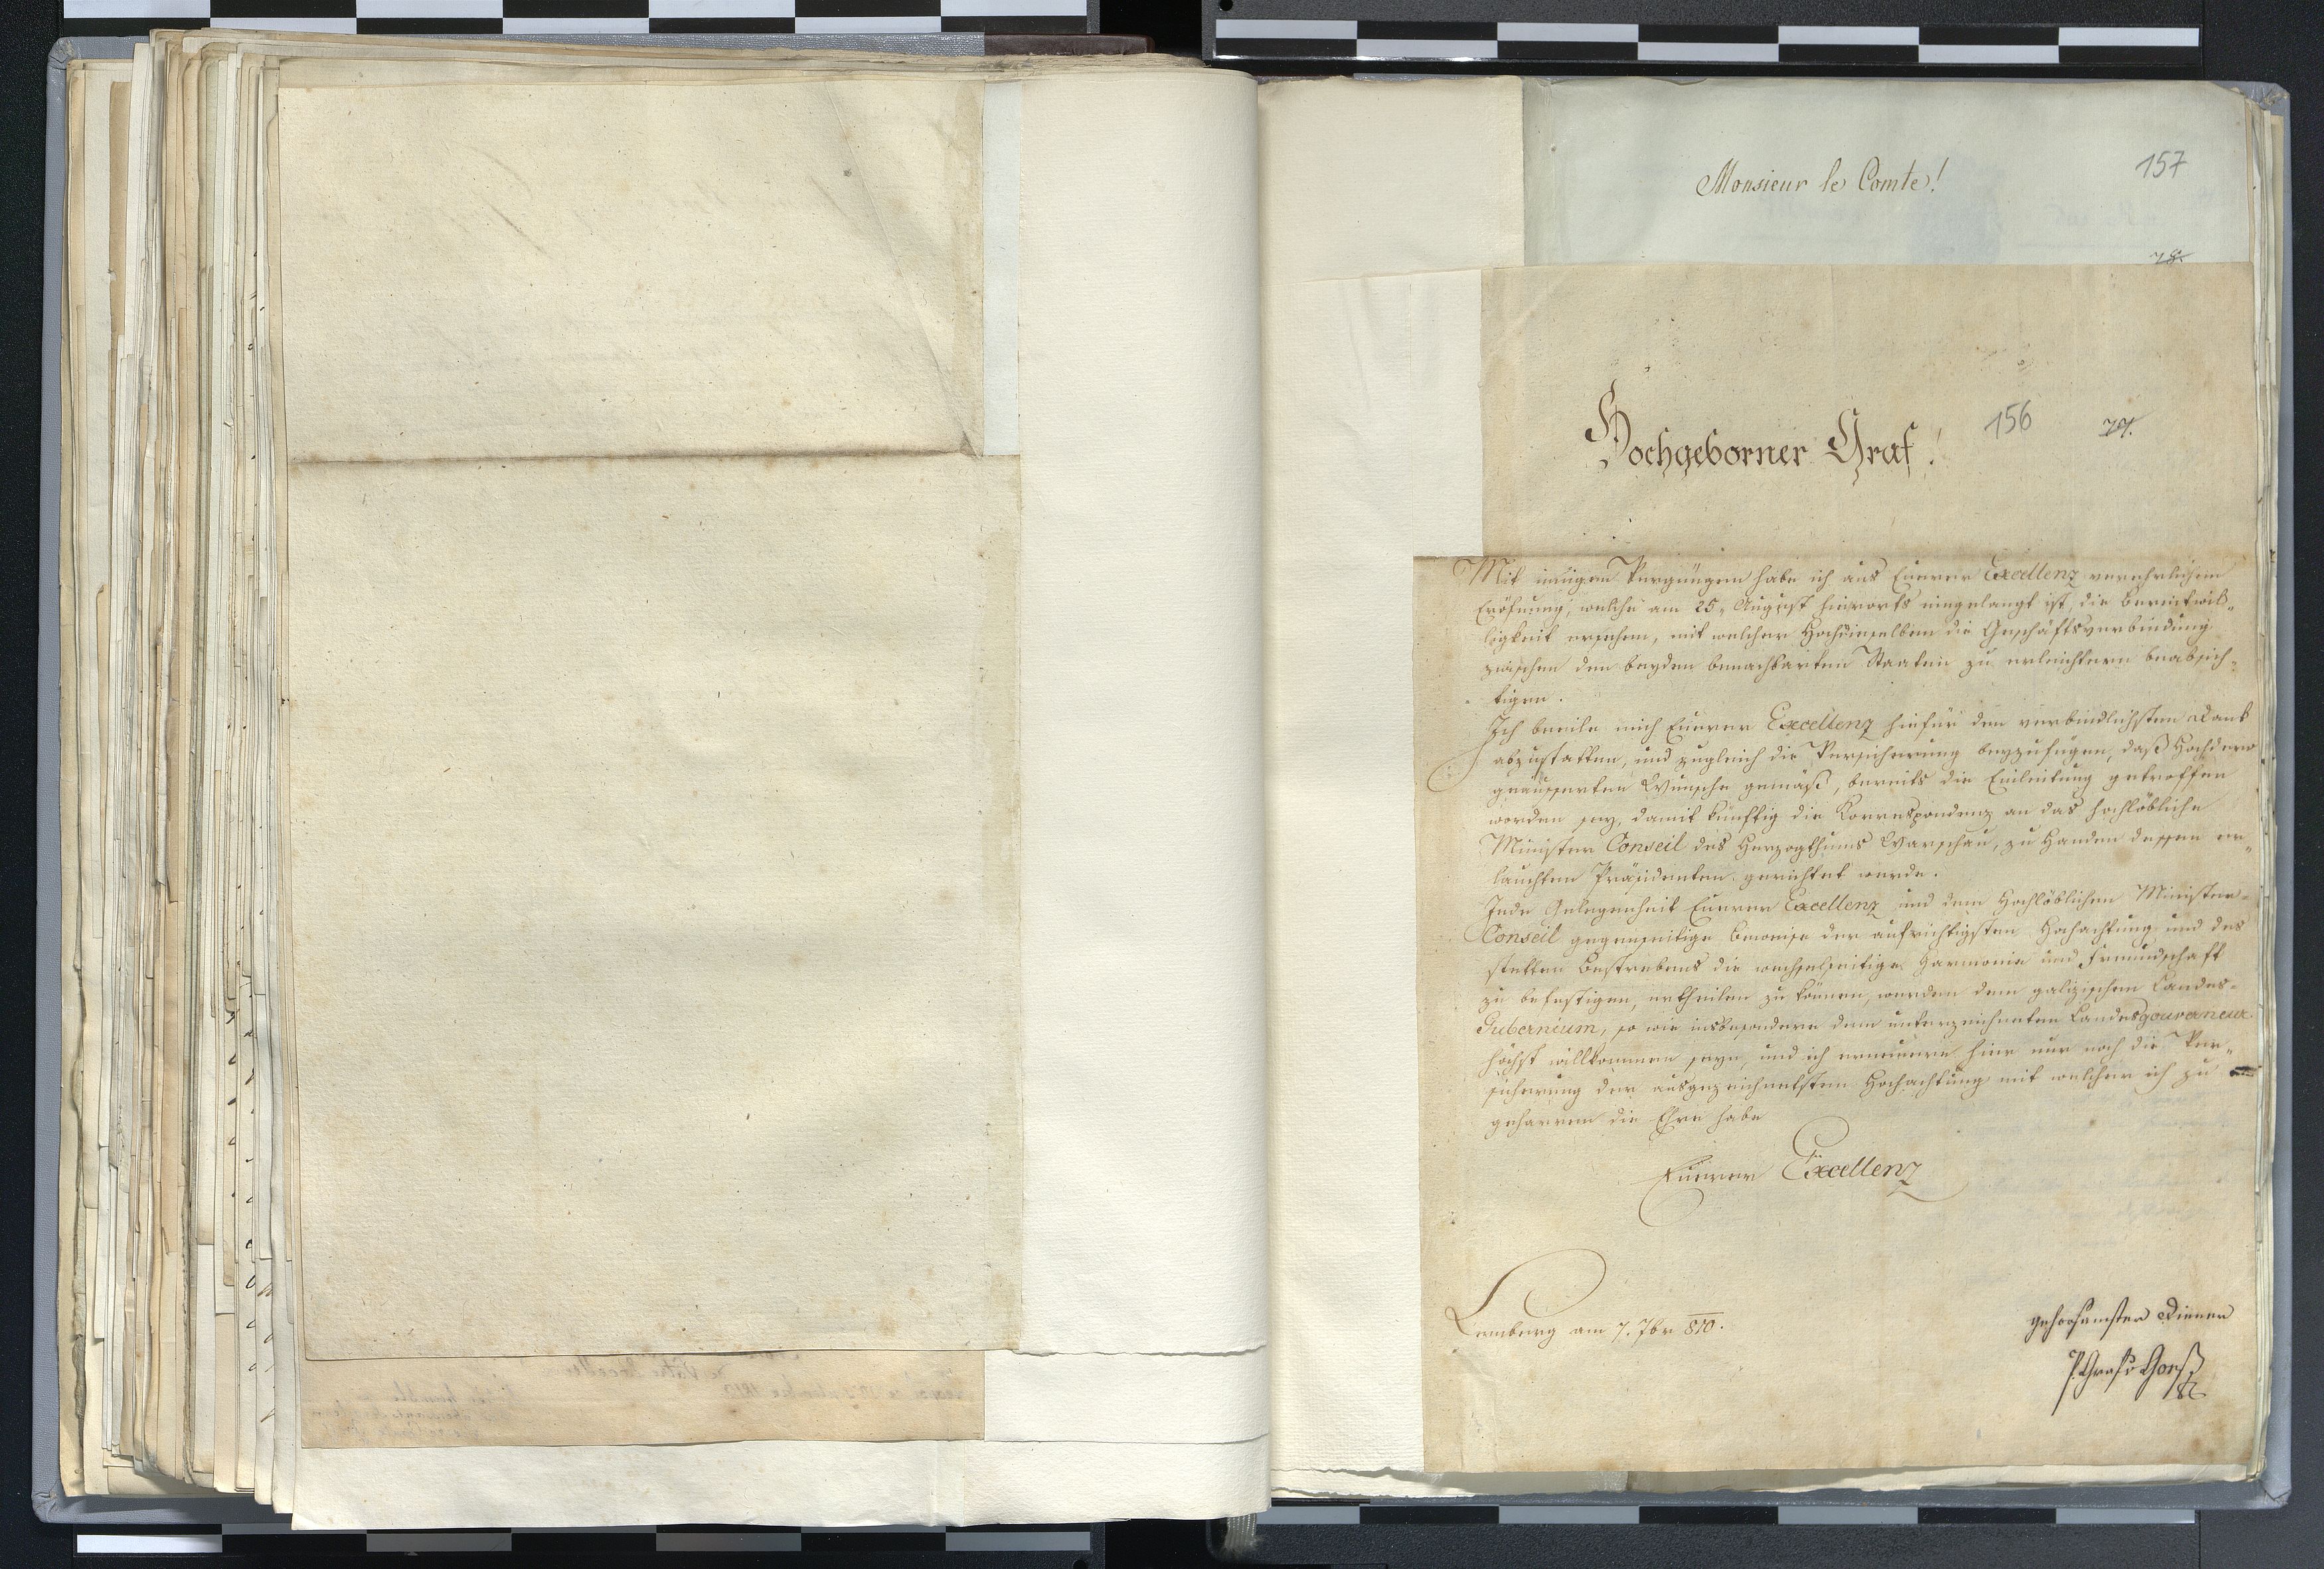 Monsieur le Comte!
157
78.
Hochgeborner Graf!
156
77.
Mit innigem Vergnügen habe ich aus Euerer Excellenz verehrlichen
Eröfnung, welche am 25. August hierorts eingelangt ist, die Bereitwil„
ligkeit ersehen, mit welcher Hochdieselben die Geschäftsverbindung
zwischen den beyden benachbarten Staaten zu erleichtern beabsich„
tigen.
Ich beeile mich Euerer Excellenz hiefür den verbindlichsten Dank
abzustatten, und zugleich die Versicherung beyzufügen, daß Hochdero
geäusserten Wunsche gemäß, bereits die Einleitung getroffen
worden sey, damit künftig die Korrespondenz an das hochlöbliche
Minister Conseil des Herzogthums Warschau, zu Handen dessen er„
lauchten Präsidenten gerichtet werde.
Jede Gelegenheit Euerer Excellenz und dem Hochlöblichen Minister-
Conseil gegenseitige Beweise der aufrichtigsten Hochachtung und des
steten Bestrebens die wechselseitige Harmonie und Freundschaft
zu befestigen, ertheilen zu können, werden dem galizischen Landes-
Gubernium, so wie insbesondere dem unterzeichneten Landesgouverneur
höchst willkommen seyn, und ich erneuere hier nur noch die Ver„
sicherung der ausgezeichnetsten Hochachtung mit welcher ich zu
geharren die Ehre habe
Euerer Excellenz
Lemberg am 7. 7br 810.
gehorsamster Diener
P. Graf v Goeß